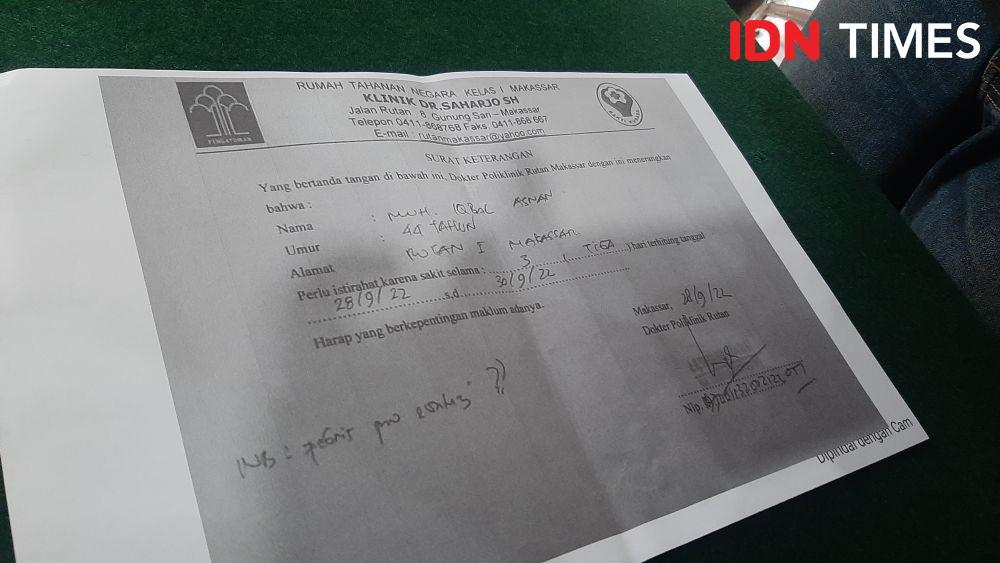 IDN TIMES
RUMAH TAHANAN NEGARA KELAS I MAKASSAR
KLINIK DR.SAHARJO SH
Jalan Rutan 8 Gunung Sari – Makassar
Telepon 0411-868768 Faks 0411-868 667
E-mail : rutanmakassar@yahoo.com
PENGAYOMAN
SURAT KETERANGAN
Yang bertanda tangan di bawah ini, Dokter Poliklinik Rutan Makassar dengan ini menerangkan
bahwa :
Nama : MUH. IQBAL ASNAN
Umur : 44 TAHUN
Alamat RUTAN I MAKASSAR
Perlu istirahat karena sakit selama : 3 ( TIGA ) hari terhitung tanggal
28/9/22 s.d. 30/9/22
Harap yang berkepentingan maklum adanya.
Makassar, 28/9/22
Dokter Poliklinik Rutan
Nip.
NB : pro
Dipindai dengan Cam